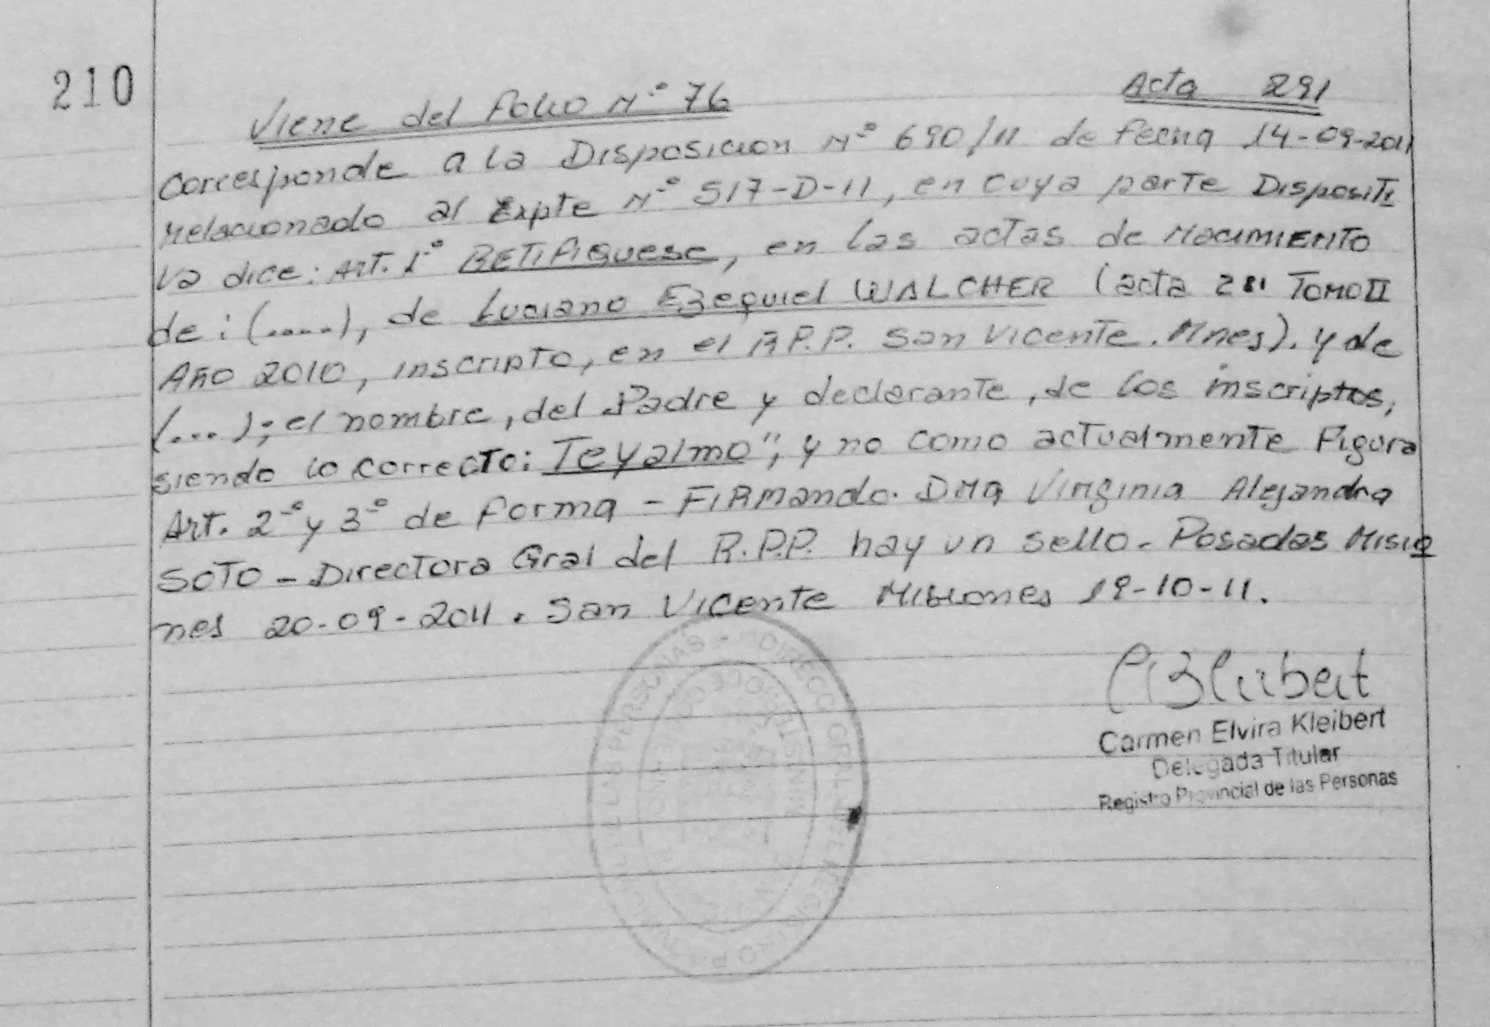 210
Viene del Folio N° 76
Acta 291
Corresponde a la Disposicion N° 690/11 de fecha 14-09-2011
relacionado al Expte N° 517-D-11, en cuya parte Dispositi
va dice: Art. 1° RETIFIQUESE, en las actas de NACIMIENTO
de: (.....), de Luciano Ezequiel WALCHER (acta 291 TOMO II
AÑO 2010, inscripto, en el R.P.P. San Vicente. Mnes). y de
(...); el nombre, del Padre y declarante, de los inscriptos,
siendo lo correcto: Teyalmo", y no como actualmente Figura
Art. 2° y 3° de forma - FIRMando. Dña Virginia Alejandra
SOTO - Directora Gral del R.P.P. hay un sello - Posadas Misio
nes 20-09-2011. San Vicente Misiones 19-10-11.
Carmen Elvira Kleibert
Delegada Titular
Registro Provincial de las Personas
DE LAS PERSONAS - DIRECC GRAL DEL REGISTRO